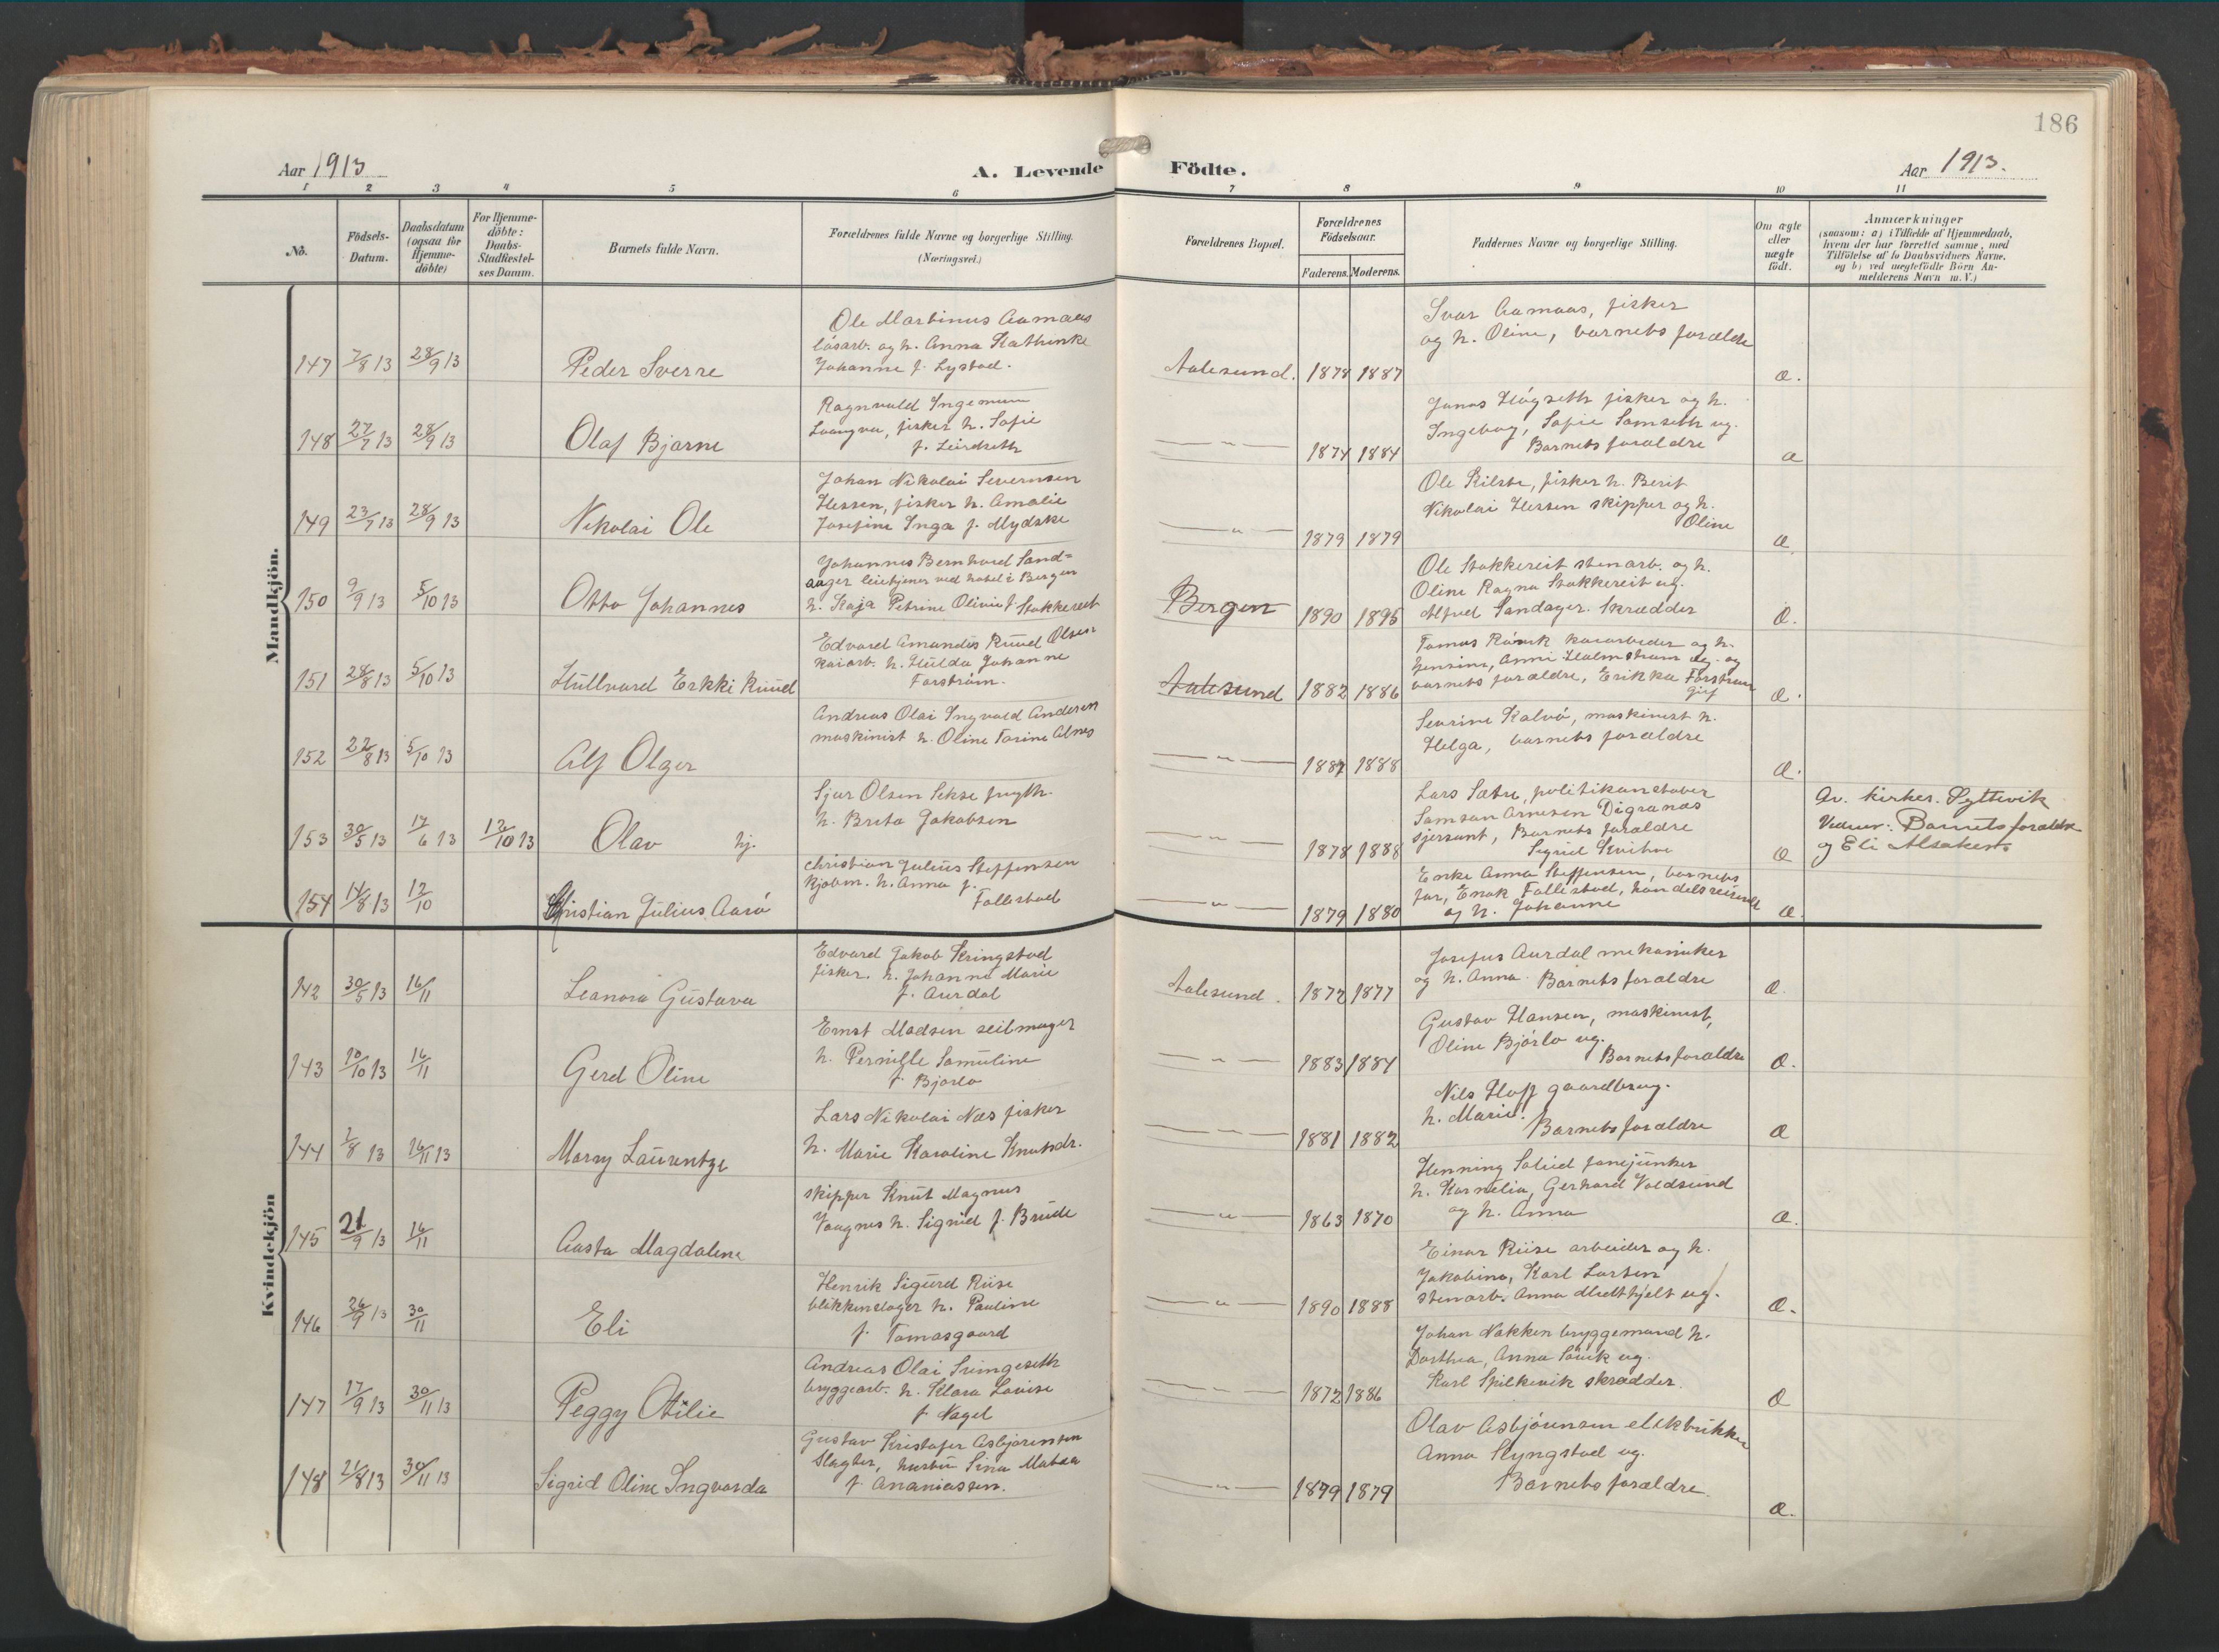 186
Aar 1913
A. Levende Födte.
Aar 1913.
1 2 3 4 5 6 7 8 9 10 11
No.
Födsels-Datum.
Daabsdatum (ogsaa for Hjemme-döbte)
For Hjemme-döbte: Daabs-Stadfæstel-ses Datum.
Barnets fulde Navn.
Forældrenes fulde Navne og borgerlige Stilling.
(Næringsvei.)
Forældrenes Bopæl.
Forældrenes Födselsaar.
Faderens. Moderens.
Faddernes Navne og borgerlige Stilling.
Om ægte eller uægte födt.
Anmærkninger
(saasom: a) i Tilfælde af Hjemmedaab,
hvem der har forrettet samme, med
Tilföielse af to Daabsvidners Navne.
og b) ved uægtefödte Börn An-
melderens Navn m. V.)
Mandkjön.
147 7/8 13 28/9 13 Peder Sverre
Ole Martinus Aamaas
lösarb. og h. Anna Kathinke
Johanne f. Lystad.
Aalesund. 1878 1887
Ivar Aamaas, fisker
og h. Oline, barnets forældre
æ.
148 27/7 13 28/9 13 Olaf Bjarne
Ragnvald Ingemun
fisker h. Sofie
— " — 1874 1884
Jonas Högseth fisker og h.
Ingeborg, Sofie Samseth ug.
Barnets forældre
æ
149 23/7 13 28/9 13 Nikolai Ole
Johan Nikolai Severinsen
Hessen, fisker h. Amalie
Josefine Inga f. Mydske
— " — 1879 1879
Ole Rilste, fisker h. Berit
Nikolai Hessen skipper og h.
Oline
æ
150 9/9 13 5/10 13 Otto Johannes
Johannes Bernhard Sand=
ager leietjener ved hotel i Bergen
h. Kaja Petrine Olivie f. Stokkereit
Bergen 1890 1895
Ole Stokkereit stenarb. og h.
Oline Ragna Stokkereit ug.
Alfred Sandager. Skrædder
æ.
151 28/8 13 5/10 13 Hullvard Erkki Ruud
Edvard Amandus Ruud Olsen
kaiarb. h. Hulda Johanne
Forström.
Aalesund 1882 1886
Tomas kaiarbeider og h.
Jensine, Anni Holmstrøm ug. og
barnets forældre, Erikka Forstrøm
gift
æ.
152 22/8 13 5/10 13 Alf Olger
Andreas Olai Ingvald Andersen
maskinist h. Oline Tarine Alnes
— " — 1887 1888
Severine Kalvö, maskinist h.
Helga, barnets forældre
æ.
153 30/5 13 17/6 13 12/10 13 Olav hj.
Sjur Olsen Sekse
h. Brita Jakobsen
— " — 1878 1888
Lars Sætre, politikonstabel
Samson Arnesen Digranæs
sjersant, Barnets forældre
Sigrid
æ
Av. kirkes. Syltevik
Vidner: Barnets forældre
og Eli Alsaker
154 14/8 13 12/10 Christian Julius Aarö
Christian Julius Steffensen
kjøbm. h. Anna f.
Follestad
— " — 1879 1880
Enke Anna Steffensen, barnets
far, Enok Follestad, handelsreisende
og h. Johanne
æ.
Kvindekjön
142 30/5 13 16/11 Leanora Gustava
Edvard Jakob Kringstad
fisker. h. Johanna Marie
f. Aurdal
Aalesund. 1872 1877
Josefus Aurdal mekaniker
og h. Anna. Barnets forældre
æ.
143 10/10 13 16/11 Gerd Oline
Ernst Madsen seilmager
h. Pernille Samuline
f. Bjørlo
— " — 1883 1884
Gustav Hansen, maskinist,
Oline Bjørlo ug.
Barnets forældre
æ.
144 1/8 13 16/11 13 Marry Laurentze
Lars Nikolai Næs fisker
h. Marie Karoline Knutsdr.
— " — 1881 1882
Nils Hoff gaardbrug.
h. Marie. Barnets forældre
æ
145 21/9 13 16/11 Aasta Magdalene
skipper Knut Magnus
Vaagnes h. Sigrid f. Brude
— " — 1863 1870
Henning fanejunker
h. Kornelia, Gerhard Voldsund
og h. Anna
æ.
146 26/9 13 30/11 Eli
Henrik Sigurd Riise
blikkenslager h. Pauline
f. Tomasgaard
— " — 1890 1888
Einar Riise arbeider og h.
Jakobina, Karl Larsen
stenarb. Anna Midthjelt ug.
æ.
147 17/9 13 30/11 13 Peggy Otilie
Andreas Olai
bryggearb. h. Klara Lovise
f. Nagel
— " — 1872 1886
Johan Nakken bryggemand h.
Dorthea, Anna ug.
Karl Spilkevik skrædder.
æ
148 21/8 13 30/11 13 Sigrid Oline Ingvarda
Gustav Kristofer Asbjørensen
Slagter, hustru Sina Matea
f. Ananiassen.
— " — 1879 1879
Olav Asbjørensen elektriker
Anna Slyngstad ug.
Barnets forældre.
æ.